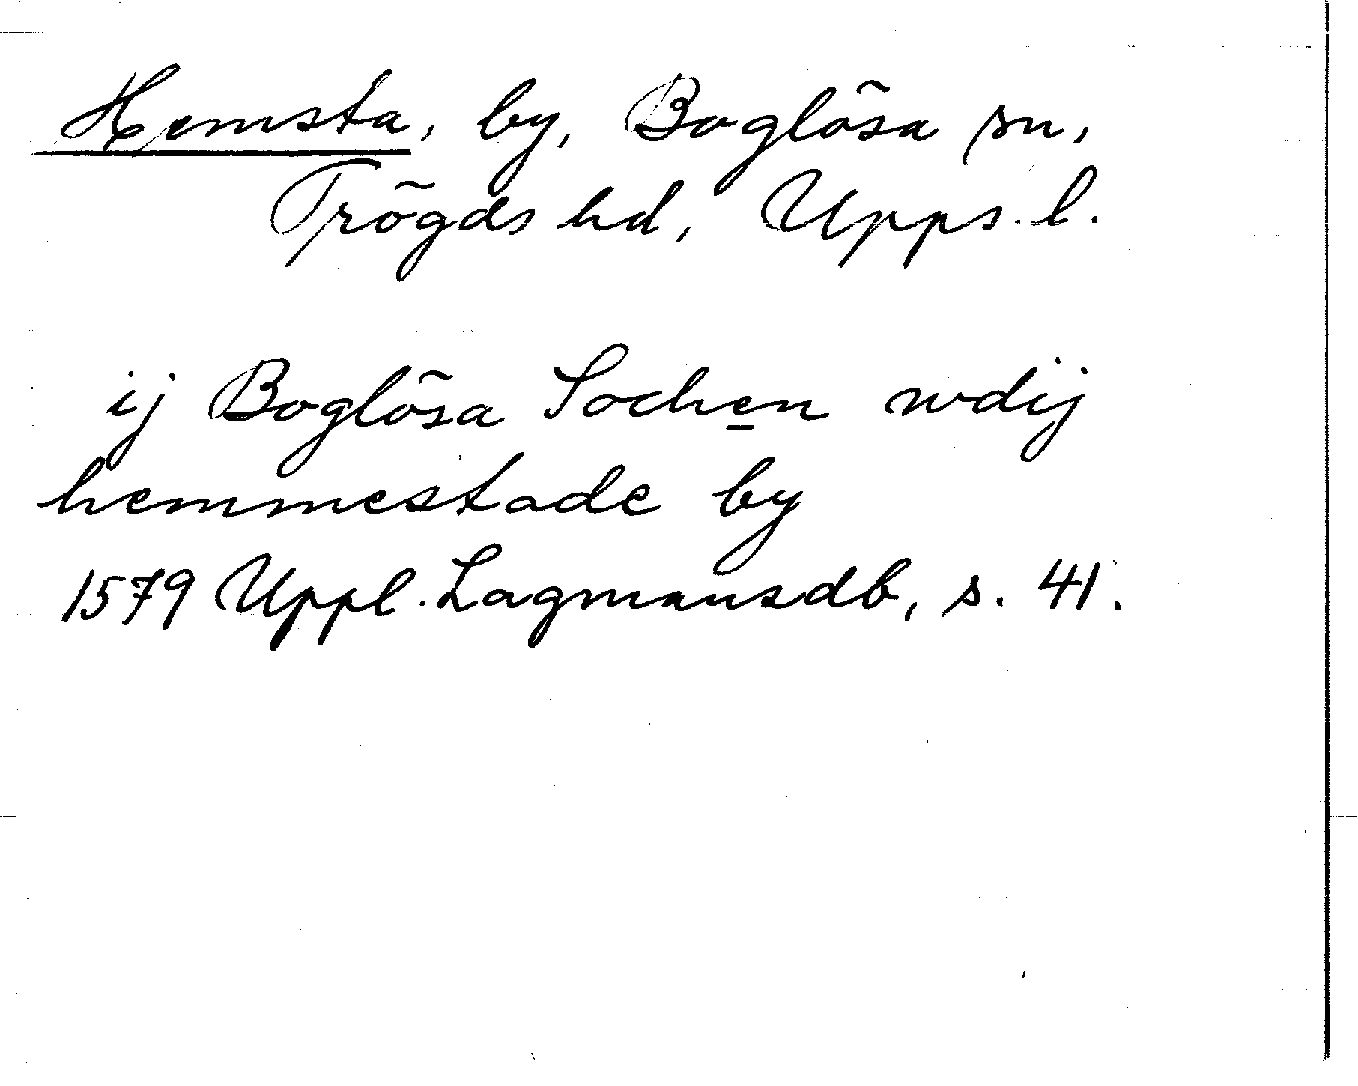 Hemsta, by, Boglösa sn,
Trögds hd, Upps. l.
ij Boglösa Sochen wdij
hemmestade by
1579 Uppl. Lagmansdb, s. 41.